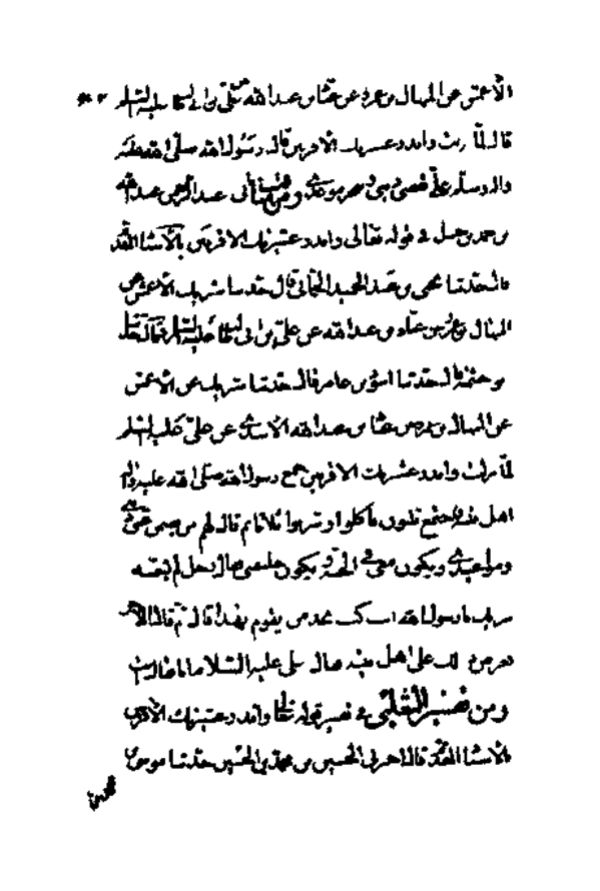 الأعمش عن المنهال بن عمرو عن عباد بن عبد الله عن علي بن أبي طالب عليه السلم
قال لما نزلت وانذر عشيرتك الاقربين قال رسول الله صلى الله عليه
واله وسلم علي يقضي ديني وينجز موعدي ومن عبد الله
بن احمد بن حنبل في قوله تعالى وانذر عشيرتك الاقربين بالاسناد المقدم
قال حدثنا يحيى بن عبد الحميد الحماني قال حدثنا شريك عن الاعمش عن
المنهال بن عمرو عن عباد بن عبد الله عن علي بن ابي طالب عليه السلم
بن خيثمة قال حدثنا اسود بن عامر قال حدثنا شريك عن الاعمش
عن المنهال بن عمرو عن عباد بن عبد الله الاسدي عن علي عليه السلم
لما نزلت وانذر عشيرتك الاقربين جمع رسول الله صلى الله عليه واله
اهل بيته فاجتمع ثلثون فاكلوا وشربوا ثلاثا ثم قال لهم من يضمن عني ديني
ومواعيدي ويكون معي في الجنة ويكون خليفتي فقال رجل لم يسمه
شريك يا رسول الله انت كنت بحرا من يقوم بهذا قال ثم قال الاخر
يعرض ذلك على اهل بيته فقال علي عليه السلام انا فقال انت
ومن تفسير الثعلبي في تفسير قوله تعالى وانذر عشيرتك الاقربين
بالاسناد المقدم قال اخبرني الحسين بن محمد بن الحسين حدثنا موسى بن
محمد بن